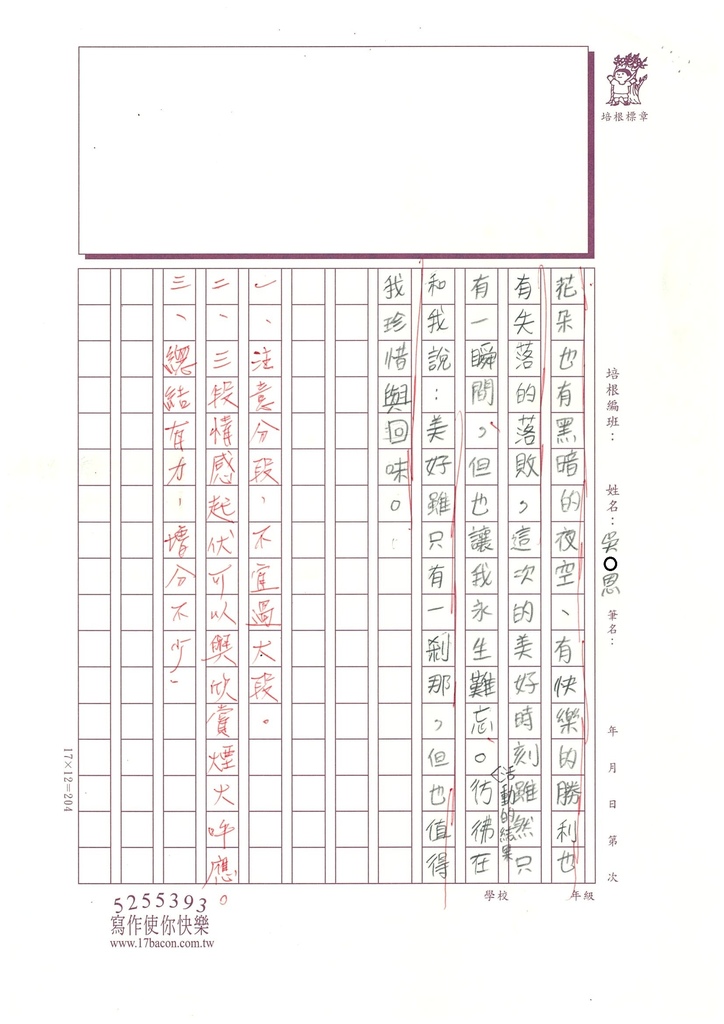 培根標章
培根編班：
姓名：吳○恩
筆名：
年 月 日 第 次
花朵也有黑暗的夜空、有快樂的勝利也
有失落的落敗，這次的美好時刻雖然只
有一瞬間，但也讓我永生難忘。彷彿在
活動的結果
和我說：美好雖只有一剎那，但也值得
我珍惜與回味。
一、注意分段，不宜過大段。
二、三段情感起伏可以與欣賞煙火呼應。
三、總結有力，增分不少！
17×12=204
學校
年級
5255393
寫作使你快樂
www.17bacon.com.tw